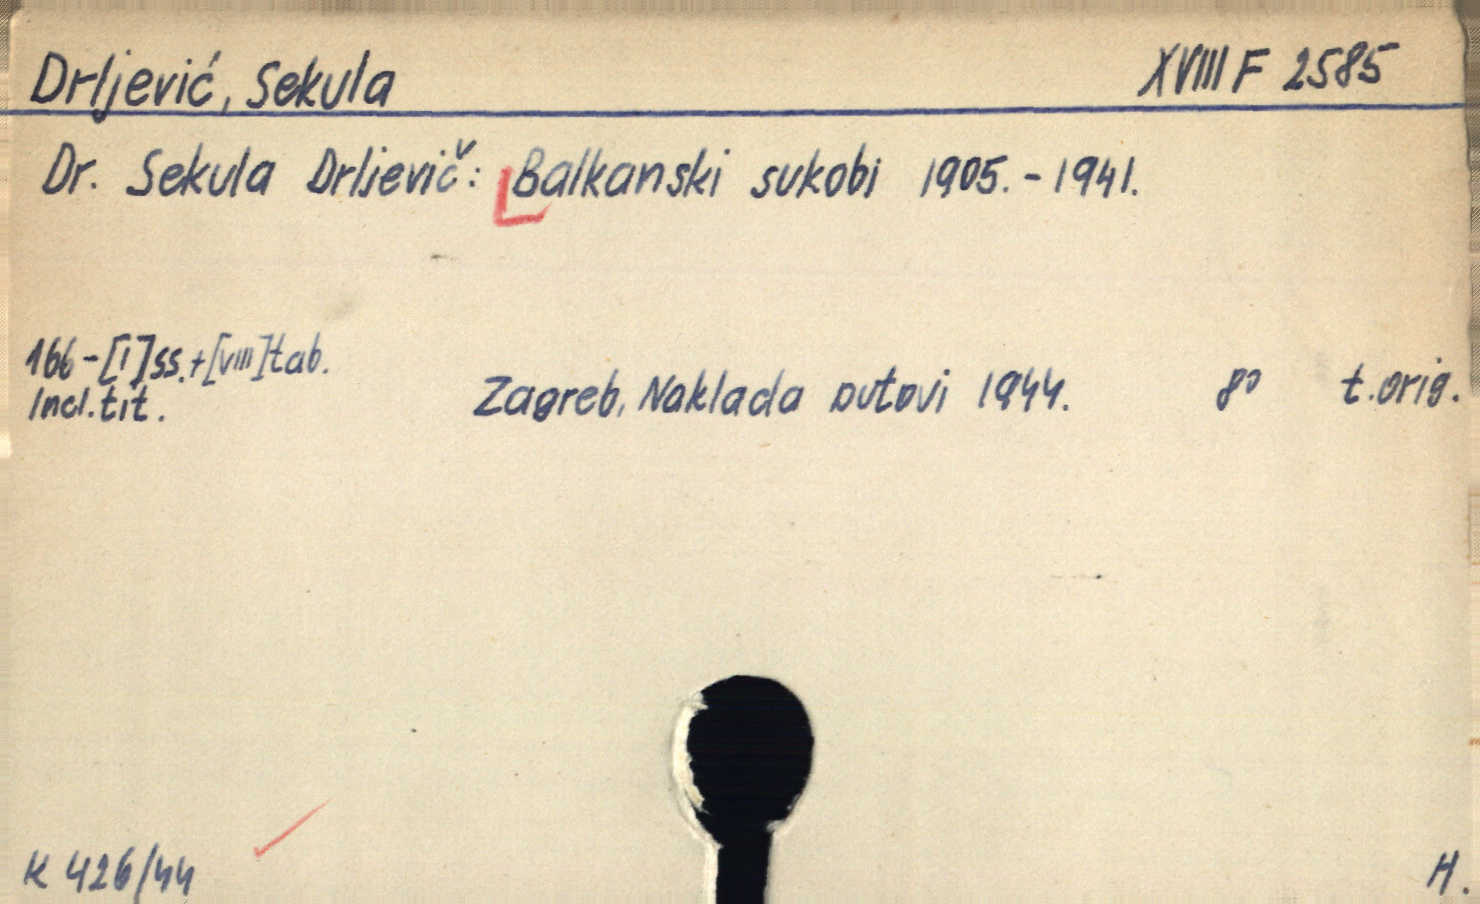 Drljević, Sekula XVIII F 2585
Dr. Sekula Drljevič: Balkanski sukobi 1905.-1941.
166-[I]ss.+[VIII]tab.
Incl.tit.
Zagreb, Naklada putovi 1944. 8° t.orig.
K 426/44
H.